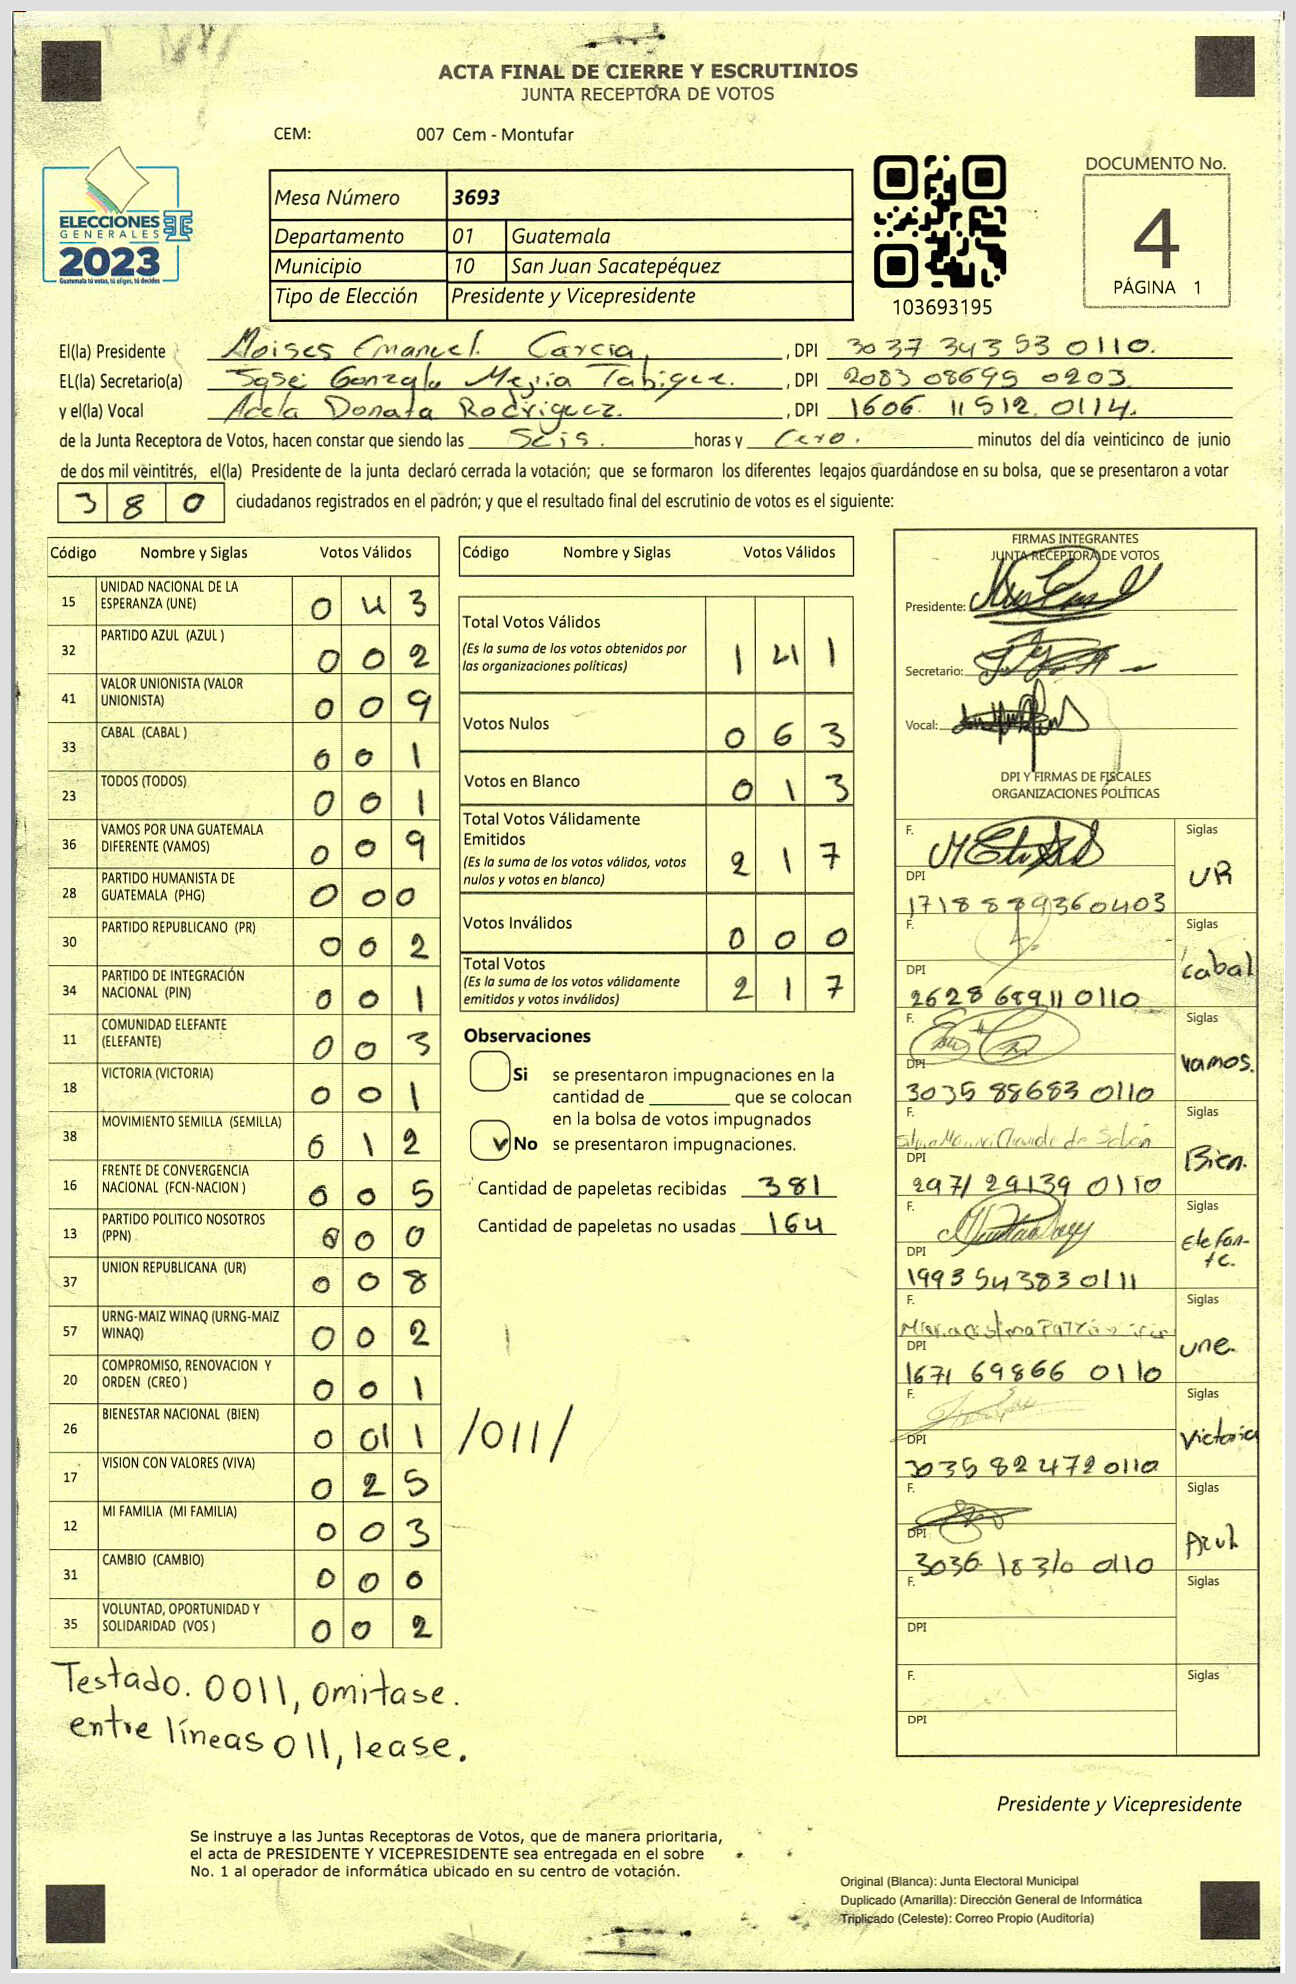 ACTA FINAL DE CIERRE Y ESCRUTINIOS
JUNTA RECEPTORA DE VOTOS
CEM: 007 Cem - Montufar
ELECCIONES
GENERALES
2023
Guatemala tú votas, tú eliges, tú decides
Mesa Número 3693
Departamento 01 Guatemala
Municipio 10 San Juan Sacatepéquez
Tipo de Elección Presidente y Vicepresidente
103693195
DOCUMENTO No.
4
PÁGINA 1
El(la) Presidente Moises Emanuel García, , DPI 3037 34353 0110.
EL(la) Secretario(a) Jose Gonzalo Mejia Tabique. , DPI 2083 08695 0203
y el(la) Vocal Adela Donata Rodriguez. , DPI 1606 11512 0114.
de la Junta Receptora de Votos, hacen constar que siendo las Seis. horas y Cero. minutos del día veinticinco de junio
de dos mil veintitrés, el(la) Presidente de la junta declaró cerrada la votación; que se formaron los diferentes legajos guardándose en su bolsa, que se presentaron a votar
380 ciudadanos registrados en el padrón; y que el resultado final del escrutinio de votos es el siguiente:
Código Nombre y Siglas Votos Válidos
15 UNIDAD NACIONAL DE LA ESPERANZA (UNE) 0 4 3
32 PARTIDO AZUL (AZUL ) 0 0 2
41 VALOR UNIONISTA (VALOR UNIONISTA) 0 0 9
33 CABAL (CABAL ) 0 0 1
23 TODOS (TODOS) 0 0 1
36 VAMOS POR UNA GUATEMALA DIFERENTE (VAMOS) 0 0 9
28 PARTIDO HUMANISTA DE GUATEMALA (PHG) 0 0 0
30 PARTIDO REPUBLICANO (PR) 0 0 2
34 PARTIDO DE INTEGRACIÓN NACIONAL (PIN) 0 0 1
11 COMUNIDAD ELEFANTE (ELEFANTE) 0 0 3
18 VICTORIA (VICTORIA) 0 0 1
38 MOVIMIENTO SEMILLA (SEMILLA) 0 1 2
16 FRENTE DE CONVERGENCIA NACIONAL (FCN-NACION ) 0 0 5
13 PARTIDO POLITICO NOSOTROS (PPN) 0 0 0
37 UNION REPUBLICANA (UR) 0 0 8
57 URNG-MAIZ WINAQ (URNG-MAIZ WINAQ) 0 0 2
20 COMPROMISO, RENOVACION Y ORDEN (CREO ) 0 0 1
26 BIENESTAR NACIONAL (BIEN) 0 01 1 /011/
17 VISION CON VALORES (VIVA) 0 2 5
12 MI FAMILIA (MI FAMILIA) 0 0 3
31 CAMBIO (CAMBIO) 0 0 0
35 VOLUNTAD, OPORTUNIDAD Y SOLIDARIDAD (VOS ) 0 0 2
Testado. 0011, omitase.
entre líneas 011, lease.
Código Nombre y Siglas Votos Válidos
Total Votos Válidos 1 4 1
(Es la suma de los votos obtenidos por
las organizaciones políticas)
Votos Nulos 0 6 3
Votos en Blanco 0 1 3
Total Votos Válidamente
Emitidos 2 1 7
(Es la suma de los votos válidos, votos
nulos y votos en blanco)
Votos Inválidos 0 0 0
Total Votos 2 1 7
(Es la suma de los votos válidamente
emitidos y votos inválidos)
Observaciones
Si se presentaron impugnaciones en la
cantidad de ________ que se colocan
en la bolsa de votos impugnados
No se presentaron impugnaciones.
Cantidad de papeletas recibidas 381
Cantidad de papeletas no usadas 164
FIRMAS INTEGRANTES
JUNTA RECEPTORA DE VOTOS
Presidente:
Secretario:
Vocal:
DPI Y FIRMAS DE FISCALES
ORGANIZACIONES POLÍTICAS
F. Siglas
DPI UR
1718 889360403
F. Siglas
DPI cabal
2628 68911 0110
F. Siglas
DPI vamos.
3035 88683 0110
F. Siglas
DPI Bien.
2971 29139 0110
F. Siglas
DPI Elefan-
te.
1993 54383 0111
F. Siglas
DPI une.
1671 69866 0110
F. Siglas
DPI Victoria
3035 82472 0110
F. Siglas
DPI Azul
3036 18310 0110
F. Siglas
DPI
F. Siglas
DPI
Presidente y Vicepresidente
Se instruye a las Juntas Receptoras de Votos, que de manera prioritaria,
el acta de PRESIDENTE Y VICEPRESIDENTE sea entregada en el sobre
No. 1 al operador de informática ubicado en su centro de votación.
Original (Blanca): Junta Electoral Municipal
Duplicado (Amarilla): Dirección General de Informática
Triplicado (Celeste): Correo Propio (Auditoría)